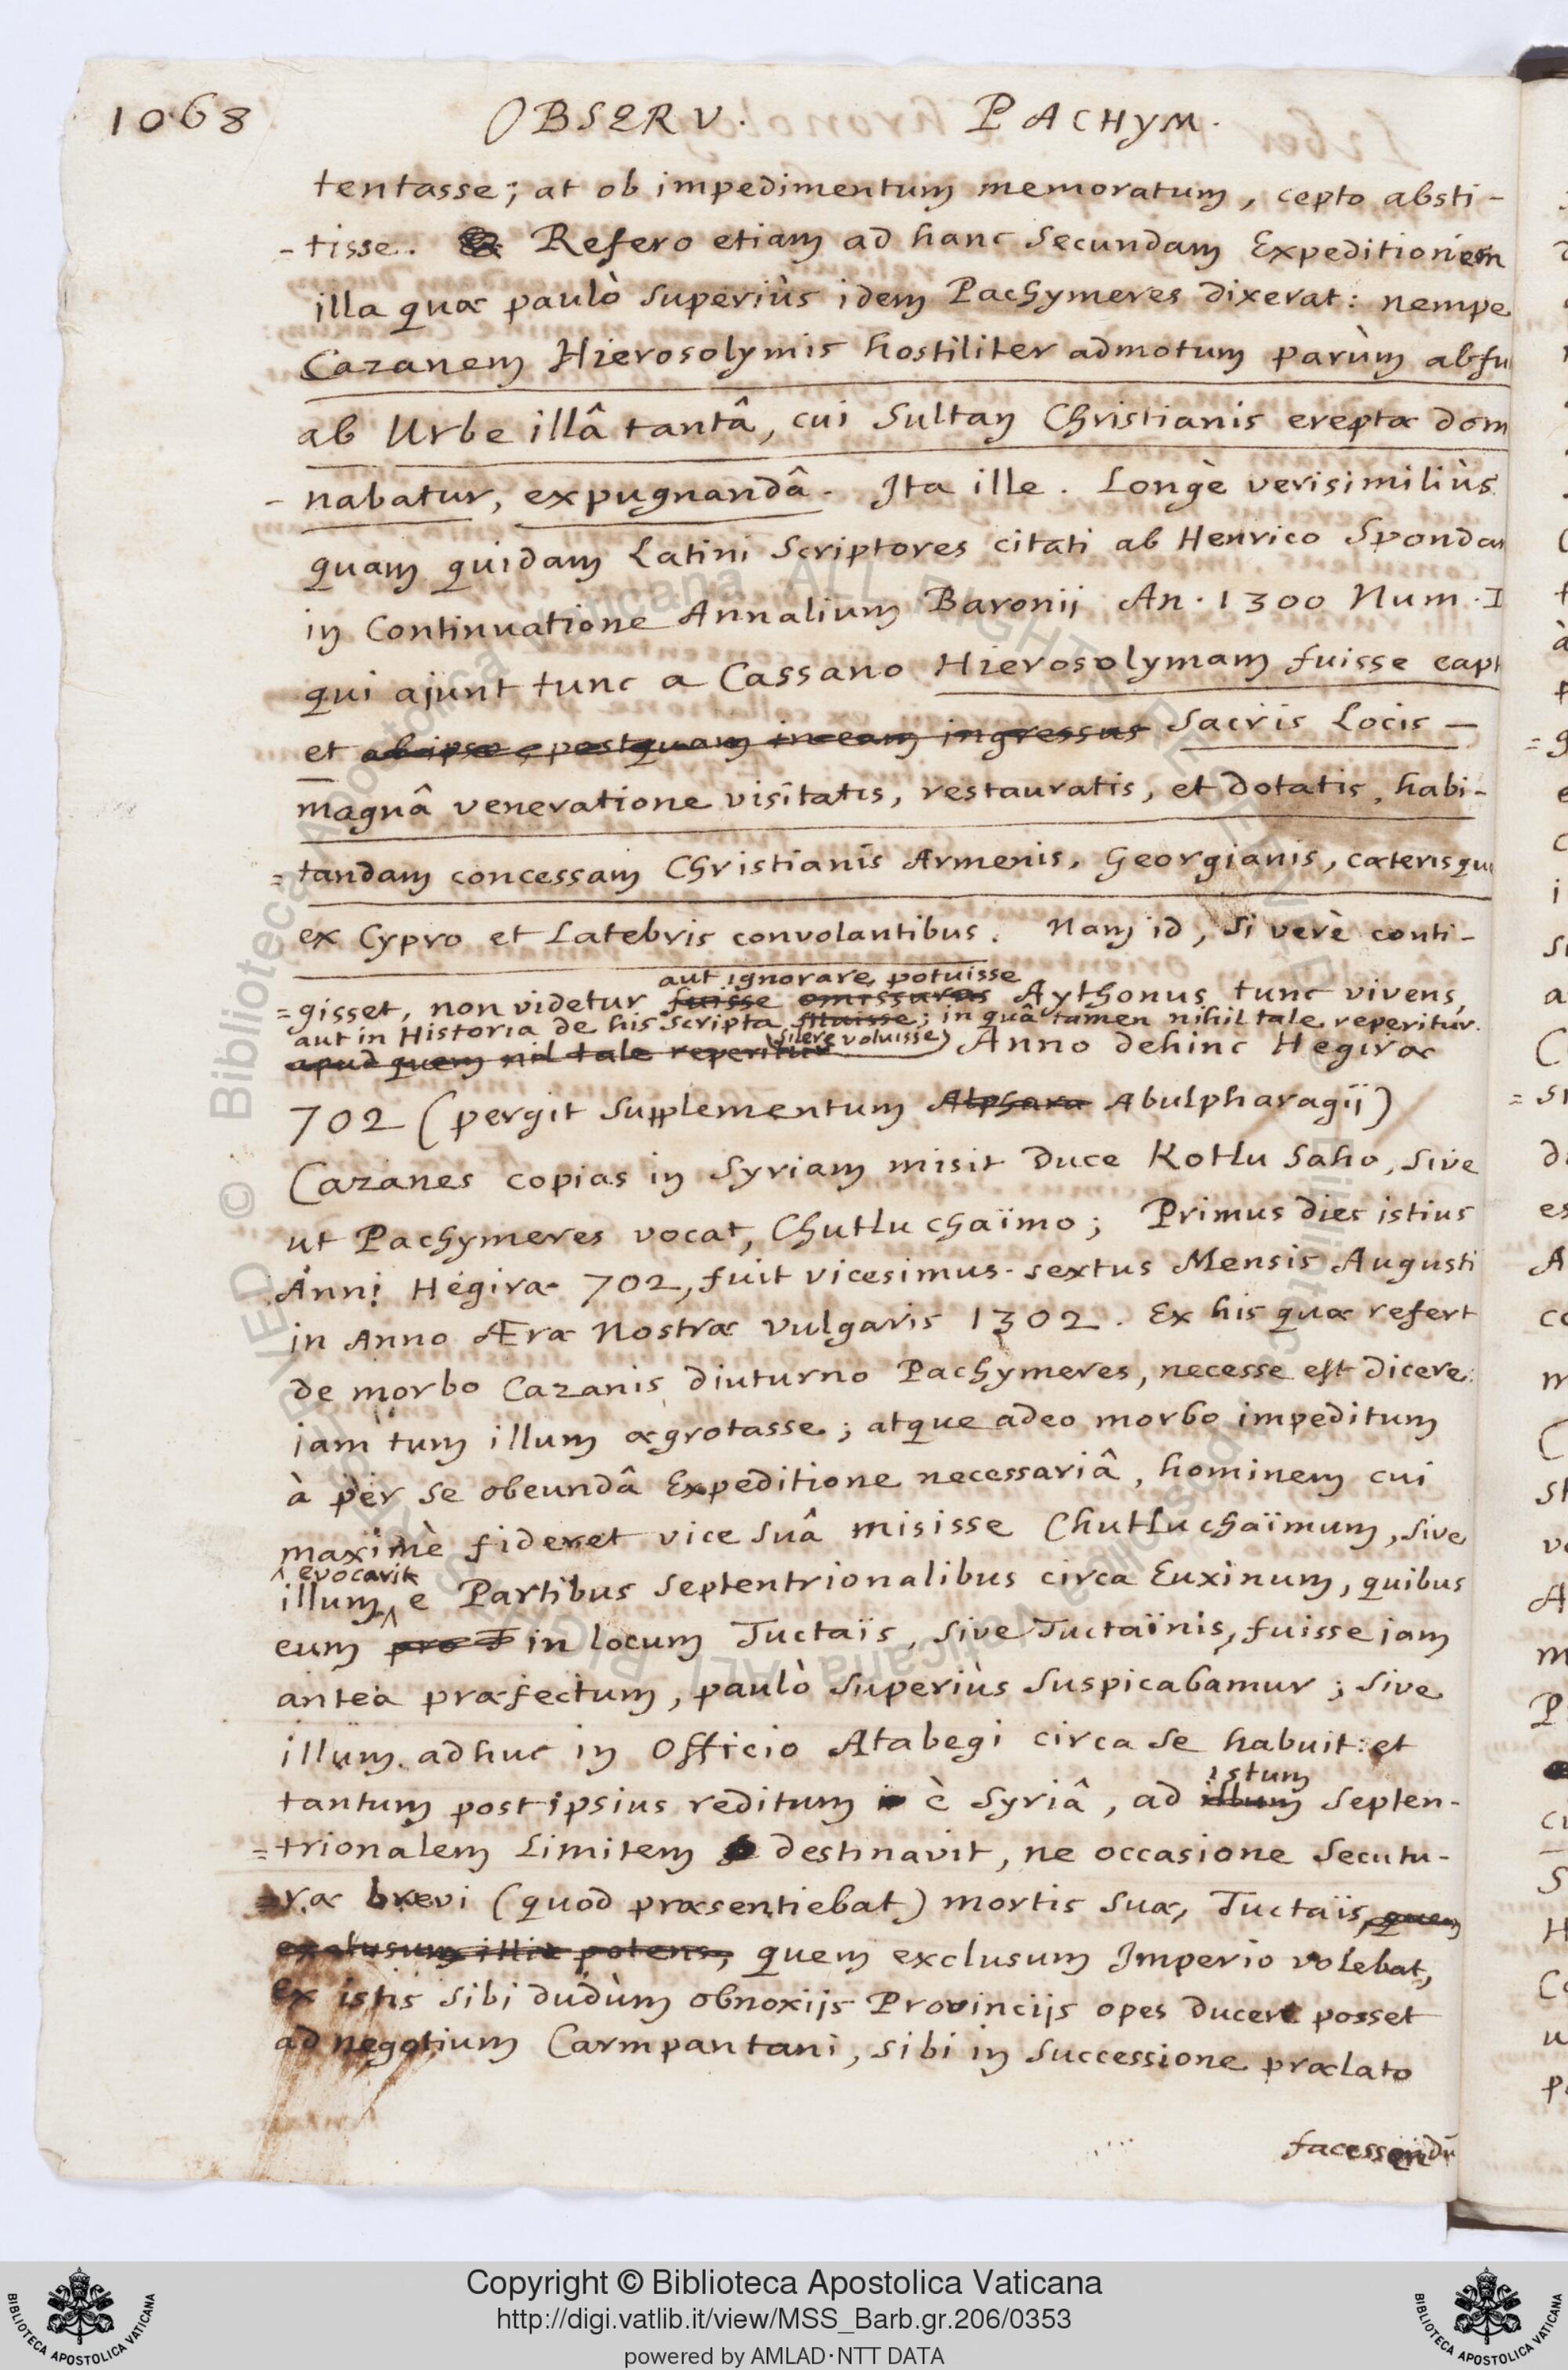 1068 OBSERV. PACHYM.
tentasse; at ob impedimentum memoratum, cepto absti-
-tisse. Refero etiam ad hanc Secundam Expeditionem
illa quæ paulò superiùs idem Pachymeres dixerat: nempe
Cazanem Hierosolymis hostiliter admotum parùm abfu
ab Urbe illâ tantâ, cui Sultan Christianis erepta dom
-nabatur, expugnandâ. Ita ille. Longè verisimiliùs
quam quidam Latini Scriptores citati ab Henrico Spondan
in Continuatione Annalium Baronij An. 1300 Num. I
qui ajunt tunc a Cassano Hierosolymam fuisse capt
et ab ipso, postquam in eam ingressus Sacris Locis —
magnâ veneratione visitatis, restauratis, et dotatis, habi-
=tandam concessam Christianis Armenis, Georgianis, cæterisque
ex Cypro et Latebris convolantibus. Nam id, si verè conti-
aut ignorare potuisse
=gisset, non videtur fuisse omissurus Aythonus tunc vivens,
aut in Historia de his scripta siluisse; in quâ tamen nihil tale reperitur.
silere voluisse
apud quem nil tale reperitur Anno dehinc Hegiræ
702 (pergit Supplementum Alphara Abulpharagij)
Cazanes copias in Syriam misit Duce Kotlu Saho, sive
ut Pachymeres vocat, Chutluchaïmo; Primus dies istius
Anni Hegiræ 702, fuit vicesimus-sextus Mensis Augusti
in Anno Æræ Nostræ vulgaris 1302. Ex his quæ refert
de morbo Cazanis diuturno Pachymeres, necesse est dicere
iam tum illum ægrotasse; atque adeo morbo impeditum
à per se obeundâ Expeditione necessariâ, hominem cui
maximè fideret vice suâ misisse Chutluchaïmum, sive
evocarit
illum e Partibus Septentrionalibus circa Euxinum, quibus
eum pro T in locum Tuctaïs, sive Tuctaïnis, fuisse iam
antea præfectum, paulò superiùs suspicabamur; sive
illum adhuc in Officio Atabegi circa se habuit: et
istum
tantum post ipsius reditum è Syriâ, ad illum Septen-
=trionalem Limitem destinavit, ne occasione secutu-
=ræ brevi (quod præsentiebat) mortis suæ, Tuctaïs, quem
exclusum illix potens, quem exclusum Imperio volebat,
ex istis sibi dudùm obnoxijs Provincijs opes ducere posset
ad negotium Carmpantani, sibi in successione prælato
facessendū
Copyright © Biblioteca Apostolica Vaticana
http://digi.vatlib.it/view/MSS_Barb.gr.206/0353
powered by AMLAD·NTT DATA